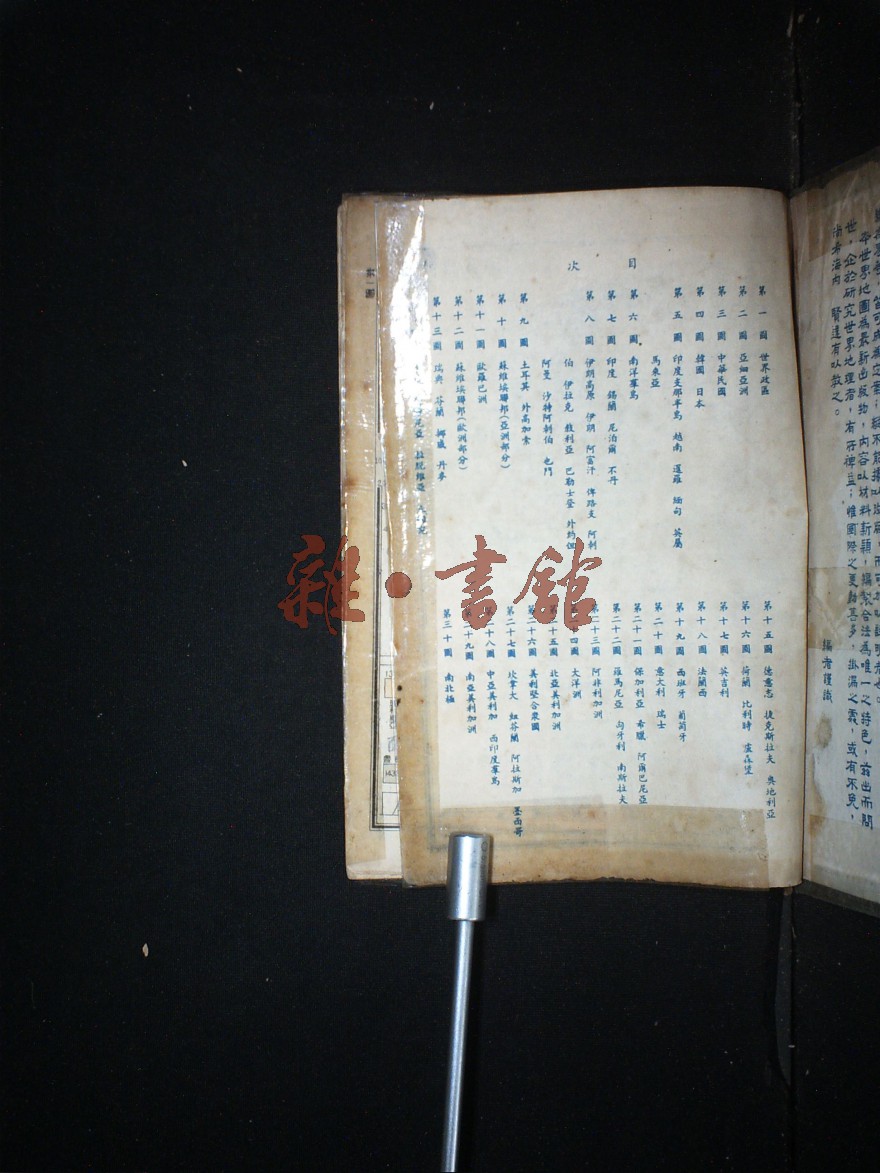 世，企於研究世界地理者，有所裨益；惟國際之更動甚多，掛漏之處，或有不免，
尚希海內 賢達有以教之。
編者謹識
目 次
第一圖 世界政區
第二圖 亞細亞洲
第三圖 中華民國
第四圖 韓國 日本
第五圖 印度支那半島 越南 暹羅 緬甸 英屬
馬來亞
第六圖 南洋羣島
第七圖 印度 錫蘭 尼泊爾 不丹
第八圖 伊朗高原 伊朗 阿富汗 俾路支 阿剌
伯 伊拉克 敘利亞 巴勒士登 外約但
阿曼 沙特阿剌伯 也門
第九圖 土耳其 外高加索
第十圖 蘇維埃聯邦(亞洲部分)
第十一圖 歐羅巴洲
第十二圖 蘇維埃聯邦(歐洲部分)
第十三圖 瑞典 芬蘭 挪威 丹麥
尼亞 拉脫維亞
第十五圖 德意志 捷克斯拉夫 奧地利亞
第十六圖 荷蘭 比利時 盧森堡
第十七圖 英吉利
第十八圖 法蘭西
第十九圖 西班牙 葡萄牙
第二十圖 意大利 瑞士
第二十一圖 保加利亞 希臘 阿爾巴尼亞
第二十二圖 羅馬尼亞 匈牙利 南斯拉夫
第二十三圖 阿非利加洲
四圖 大洋洲
十五圖 北亞美利加洲
第二十六圖 美利堅合衆國
第二十七圖 坎拿大 紐芬蘭 阿拉斯加 墨西哥
十八圖 中亞美利加 西印度羣島
第二十九圖 南亞美利加洲
第三十圖 南北極
第一圖
雜·書館